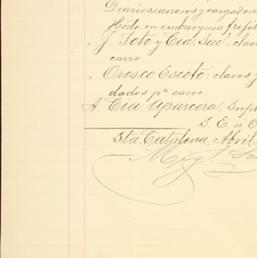 Diarios carreros y cargadores
Hedo. en embarques frijol
" J. Soto y Cia. Suc. clavos
carro
" Orosco Escoto: clavos y
dados pa. carro
A Cia Aparcera:
S. E. u O.
Sta. Catalina, Abril
Migl.